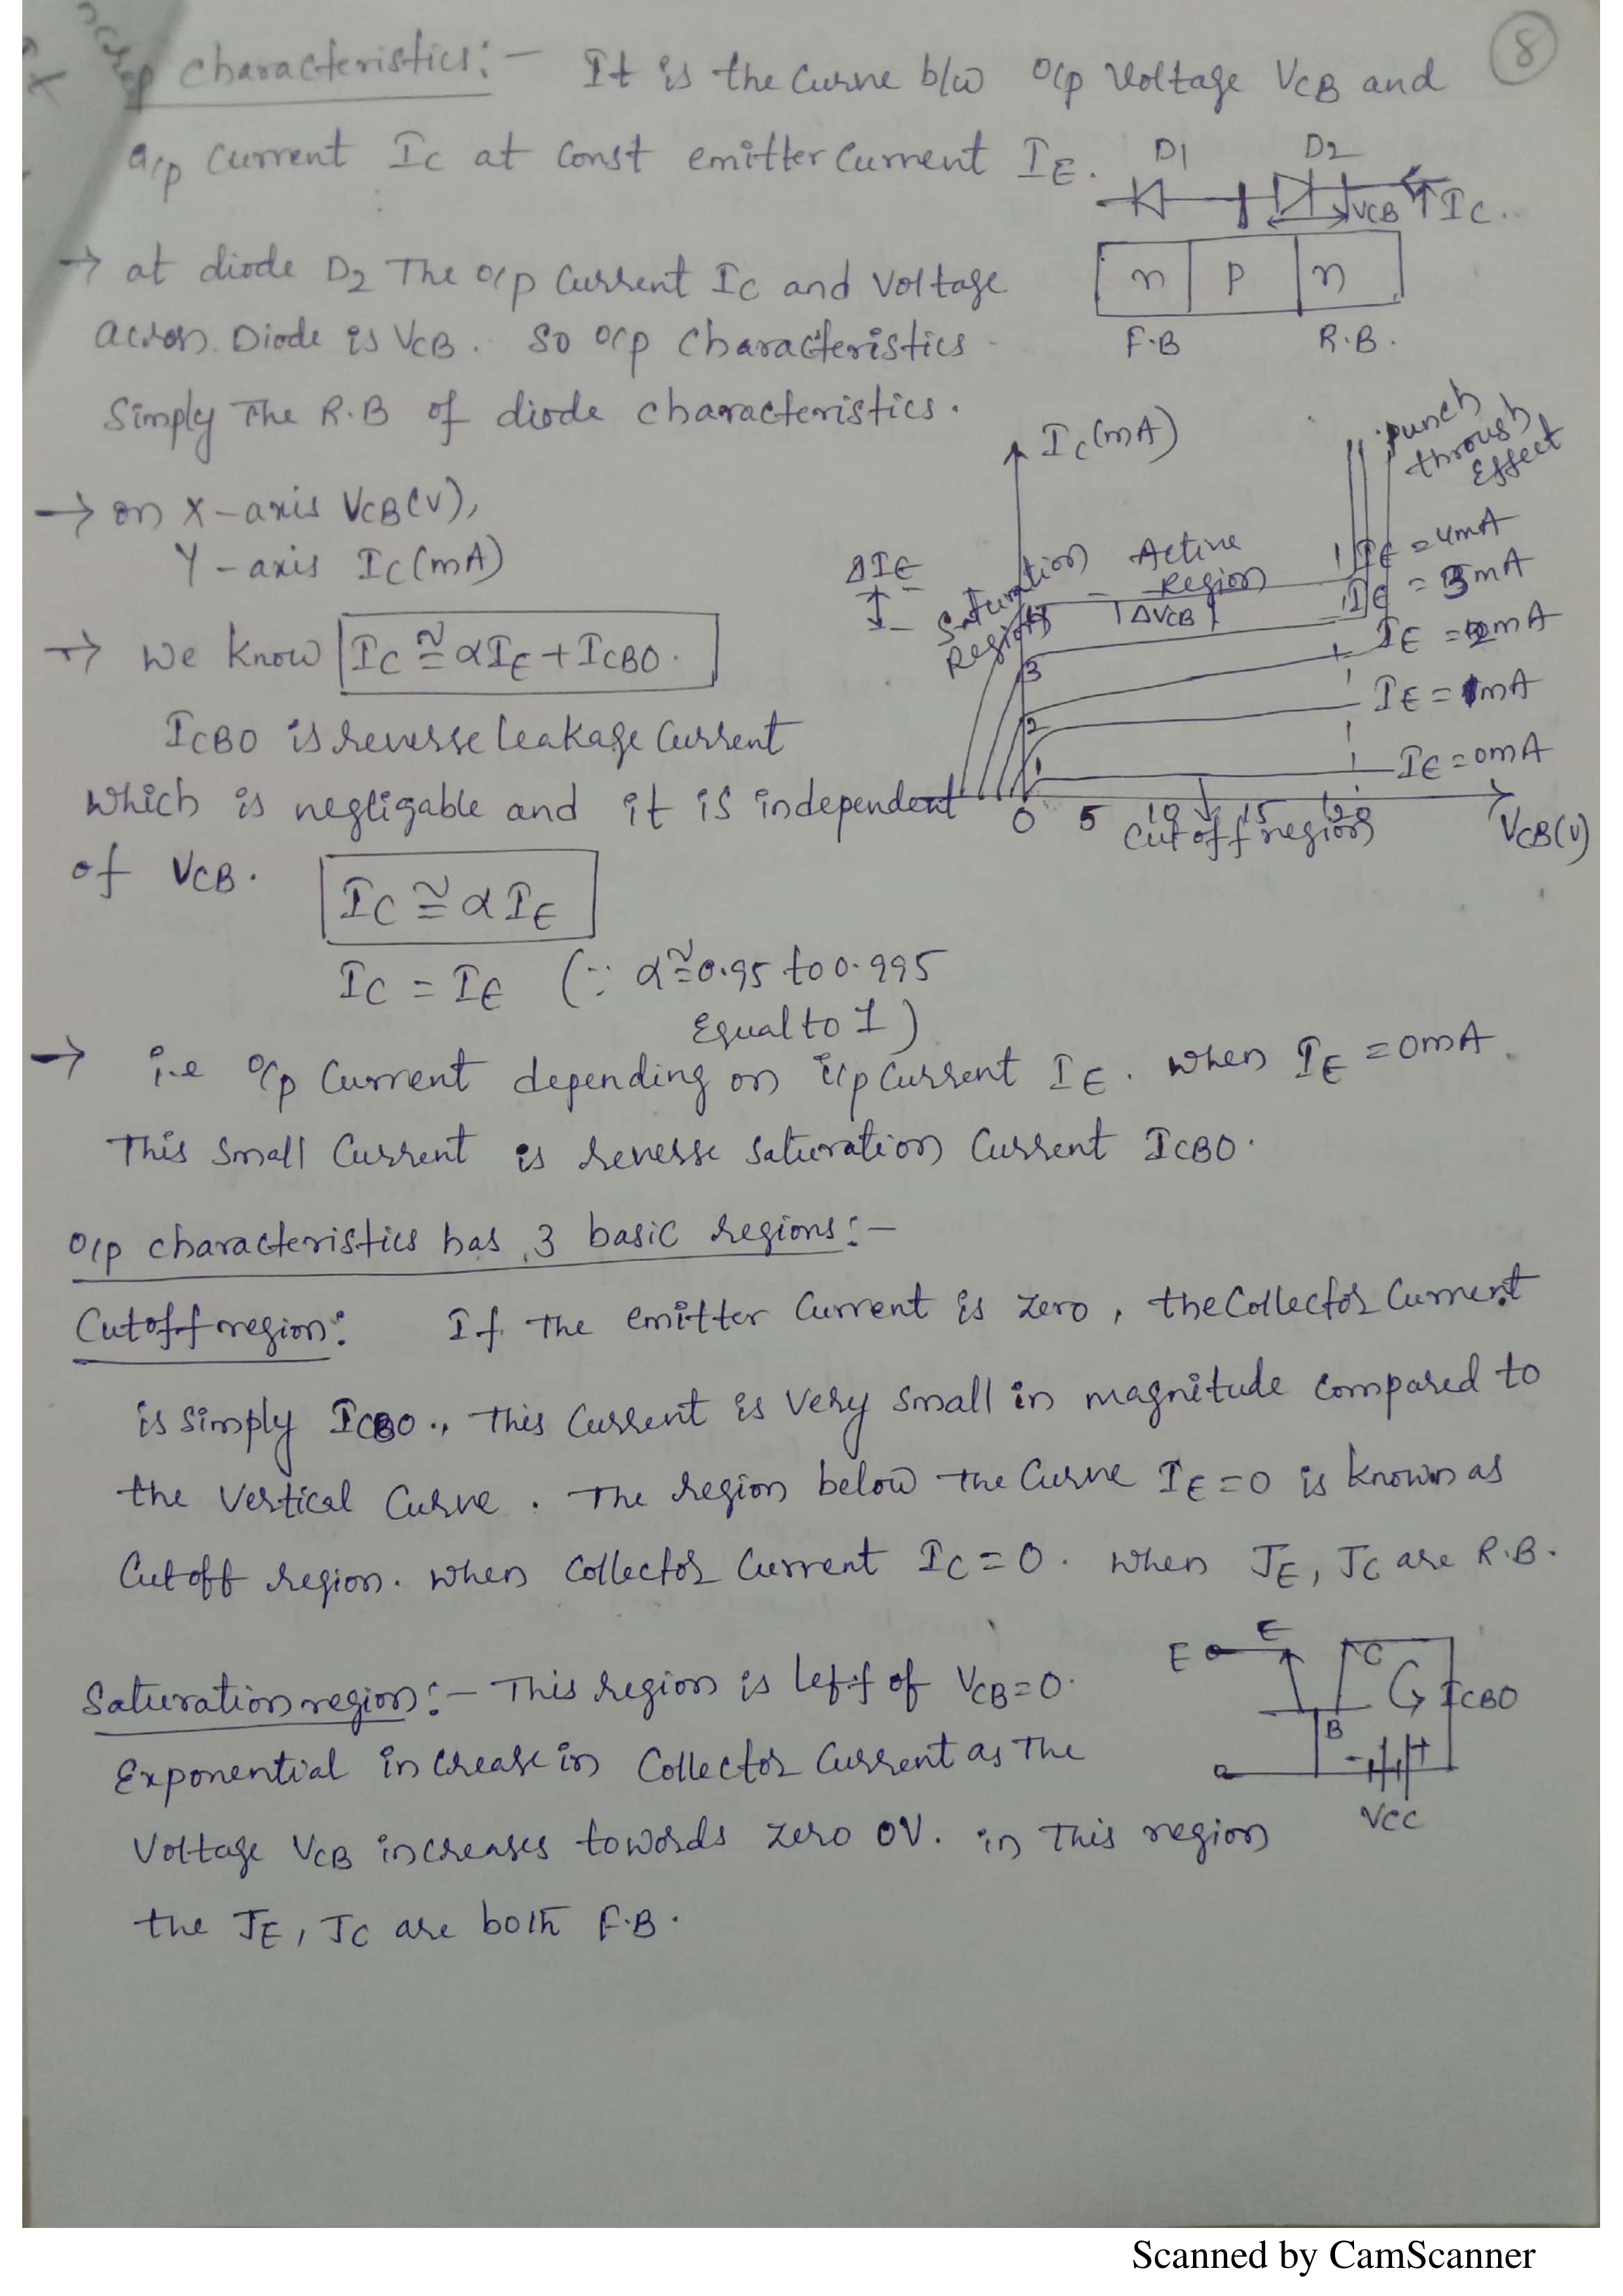 8
o/p characteristics:- It is the curve b/w o/p Voltage VCB and
o/p Current IC at Const emitter Current IE.
D1 D2
VCB IC.
n p n
F.B R.B.
→ at diode D2 The o/p Current IC and Voltage
across Diode is VCB. So o/p characteristics
Simply The R.B of diode characteristics.
→ on X-axis VCB(V),
Y-axis IC(mA)
IC(mA)
Punch
through
Effect
ΔIE
Saturation
Region
Active
Region
ΔVCB
IE = 4mA
IE = 3mA
IE = 2mA
IE = 1mA
IE = 0mA
3
2
1
0 5 10 15 20
Cutoff region
VCB(V)
→ We know IC ≅ αIE + ICBO.
ICBO is reverse leakage Current
which is negligable and it is independent
of VCB.
IC ≅ αIE
IC = IE (∵ α≅0.95 to 0.995
Equal to 1)
→ i.e o/p Current depending on i/p Current IE. when IE = 0mA.
This Small Current is reverse saturation Current ICBO.
o/p characteristics has 3 basic regions:-
Cutoff region: If The emitter Current is zero, the Collector Current
is simply ICBO., This Current is Very small in magnitude compared to
the Vertical Curve. The region below the Curve IE=0 is known as
Cutoff region. when Collector Current IC=0. when JE, JC are R.B.
E E C
ICBO
B
- +
VCC
Saturation region:- This region is left of VCB=0.
Exponential increase in Collector Current as The
Voltage VCB increases towords zero 0V. in This region
the JE, JC are both F.B.
Scanned by CamScanner